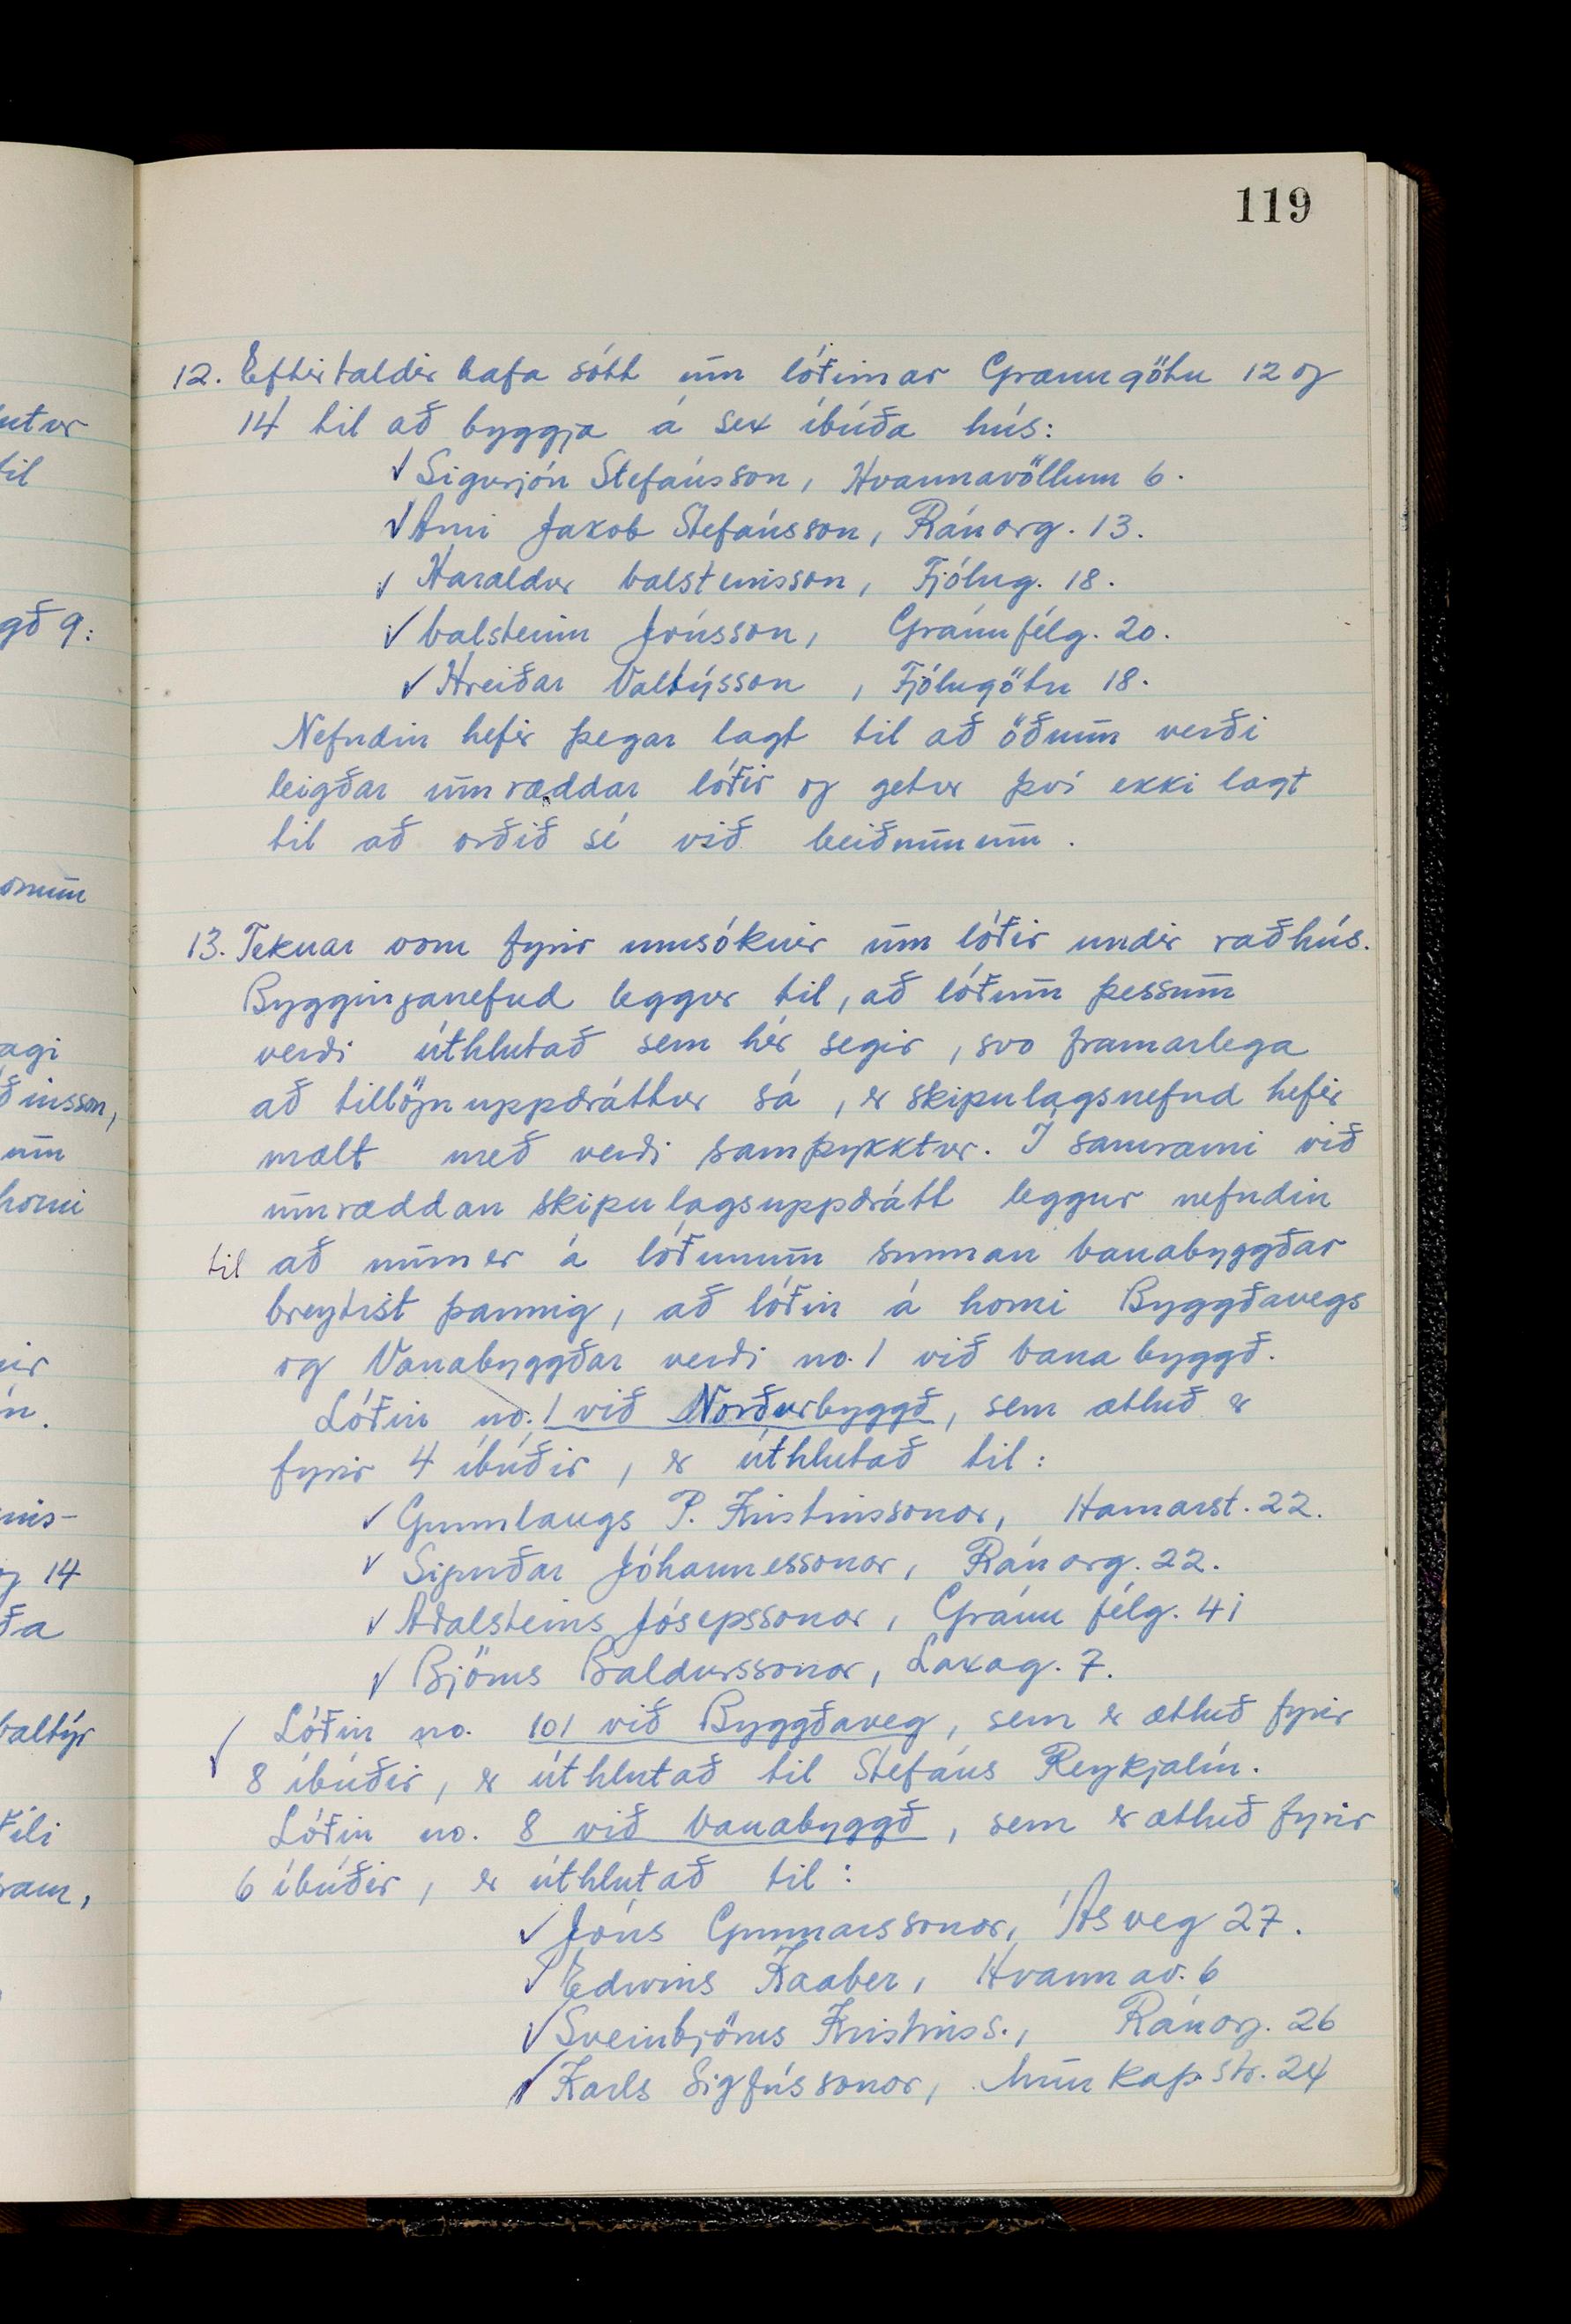 119
12. Eftirtaldir hafa sótt um lóðirnar Grænugötu 12 og
14 til að byggja á sex íbúða hús:
✓ Sigurjón Stefánsson, Hvannavöllum 6.
✓ Árni Jakob Stefánsson, Ránarg. 13.
✓ Haraldur Valsteinsson, Fjólug. 18.
✓ Valsteinn Jónsson, Gránufélg. 20.
✓ Hreiðar Valtýsson, Fjólugötu 18.
Nefndin hefir þegar lagt til að öðrum verði
leigðar umræddar lóðir og getur því ekki lagt
til að orðið sé við beiðninni.
13. Teknar voru fyrir umsóknir um lóðir undir raðhús.
Bygginganefnd leggur til, að lóðum þessum
verði úthlutað sem hér segir, svo framarlega
að tillöguuppdráttur sá, er skipulagsnefnd hefir
mælt með verði samþykktur. Í samræmi við
umræddan skipulagsuppdrátt leggur nefndin
til að númer á lóðunum sunnan Vanabyggðar
breytist þannig, að lóðin á horni Byggðavegs
og Vanabyggðar verði no. 1 við Vanabyggð.
Lóðin no. 1 við Norðurbyggð, sem ætluð er
fyrir 4 íbúðir, er úthlutað til:
✓ Gunnlaugs P. Kristinssonar, Hamarst. 22.
✓ Sigurðar Jóhannessonar, Ránarg. 22.
✓ Aðalsteins Jósepssonar, Gránufélg. 41
✓ Björns Baldurssonar, Laxag. 7.
✓ Lóðin no. 101 við Byggðaveg, sem er ætluð fyrir
8 íbúðir, er úthlutað til Stefáns Reykjalín.
Lóðin no. 8 við Vanabyggð, sem er ætluð fyrir
6 íbúðir, er úthlutað til:
✓ Jóns Gunnarssonar, Ásveg 27.
✓ Edwins Kaaber, Hvannav. 6
✓ Sveinbjörns Kristinss., Ránarg. 26
✓ Karls Sigfússonar, Munkaþ.str. 24